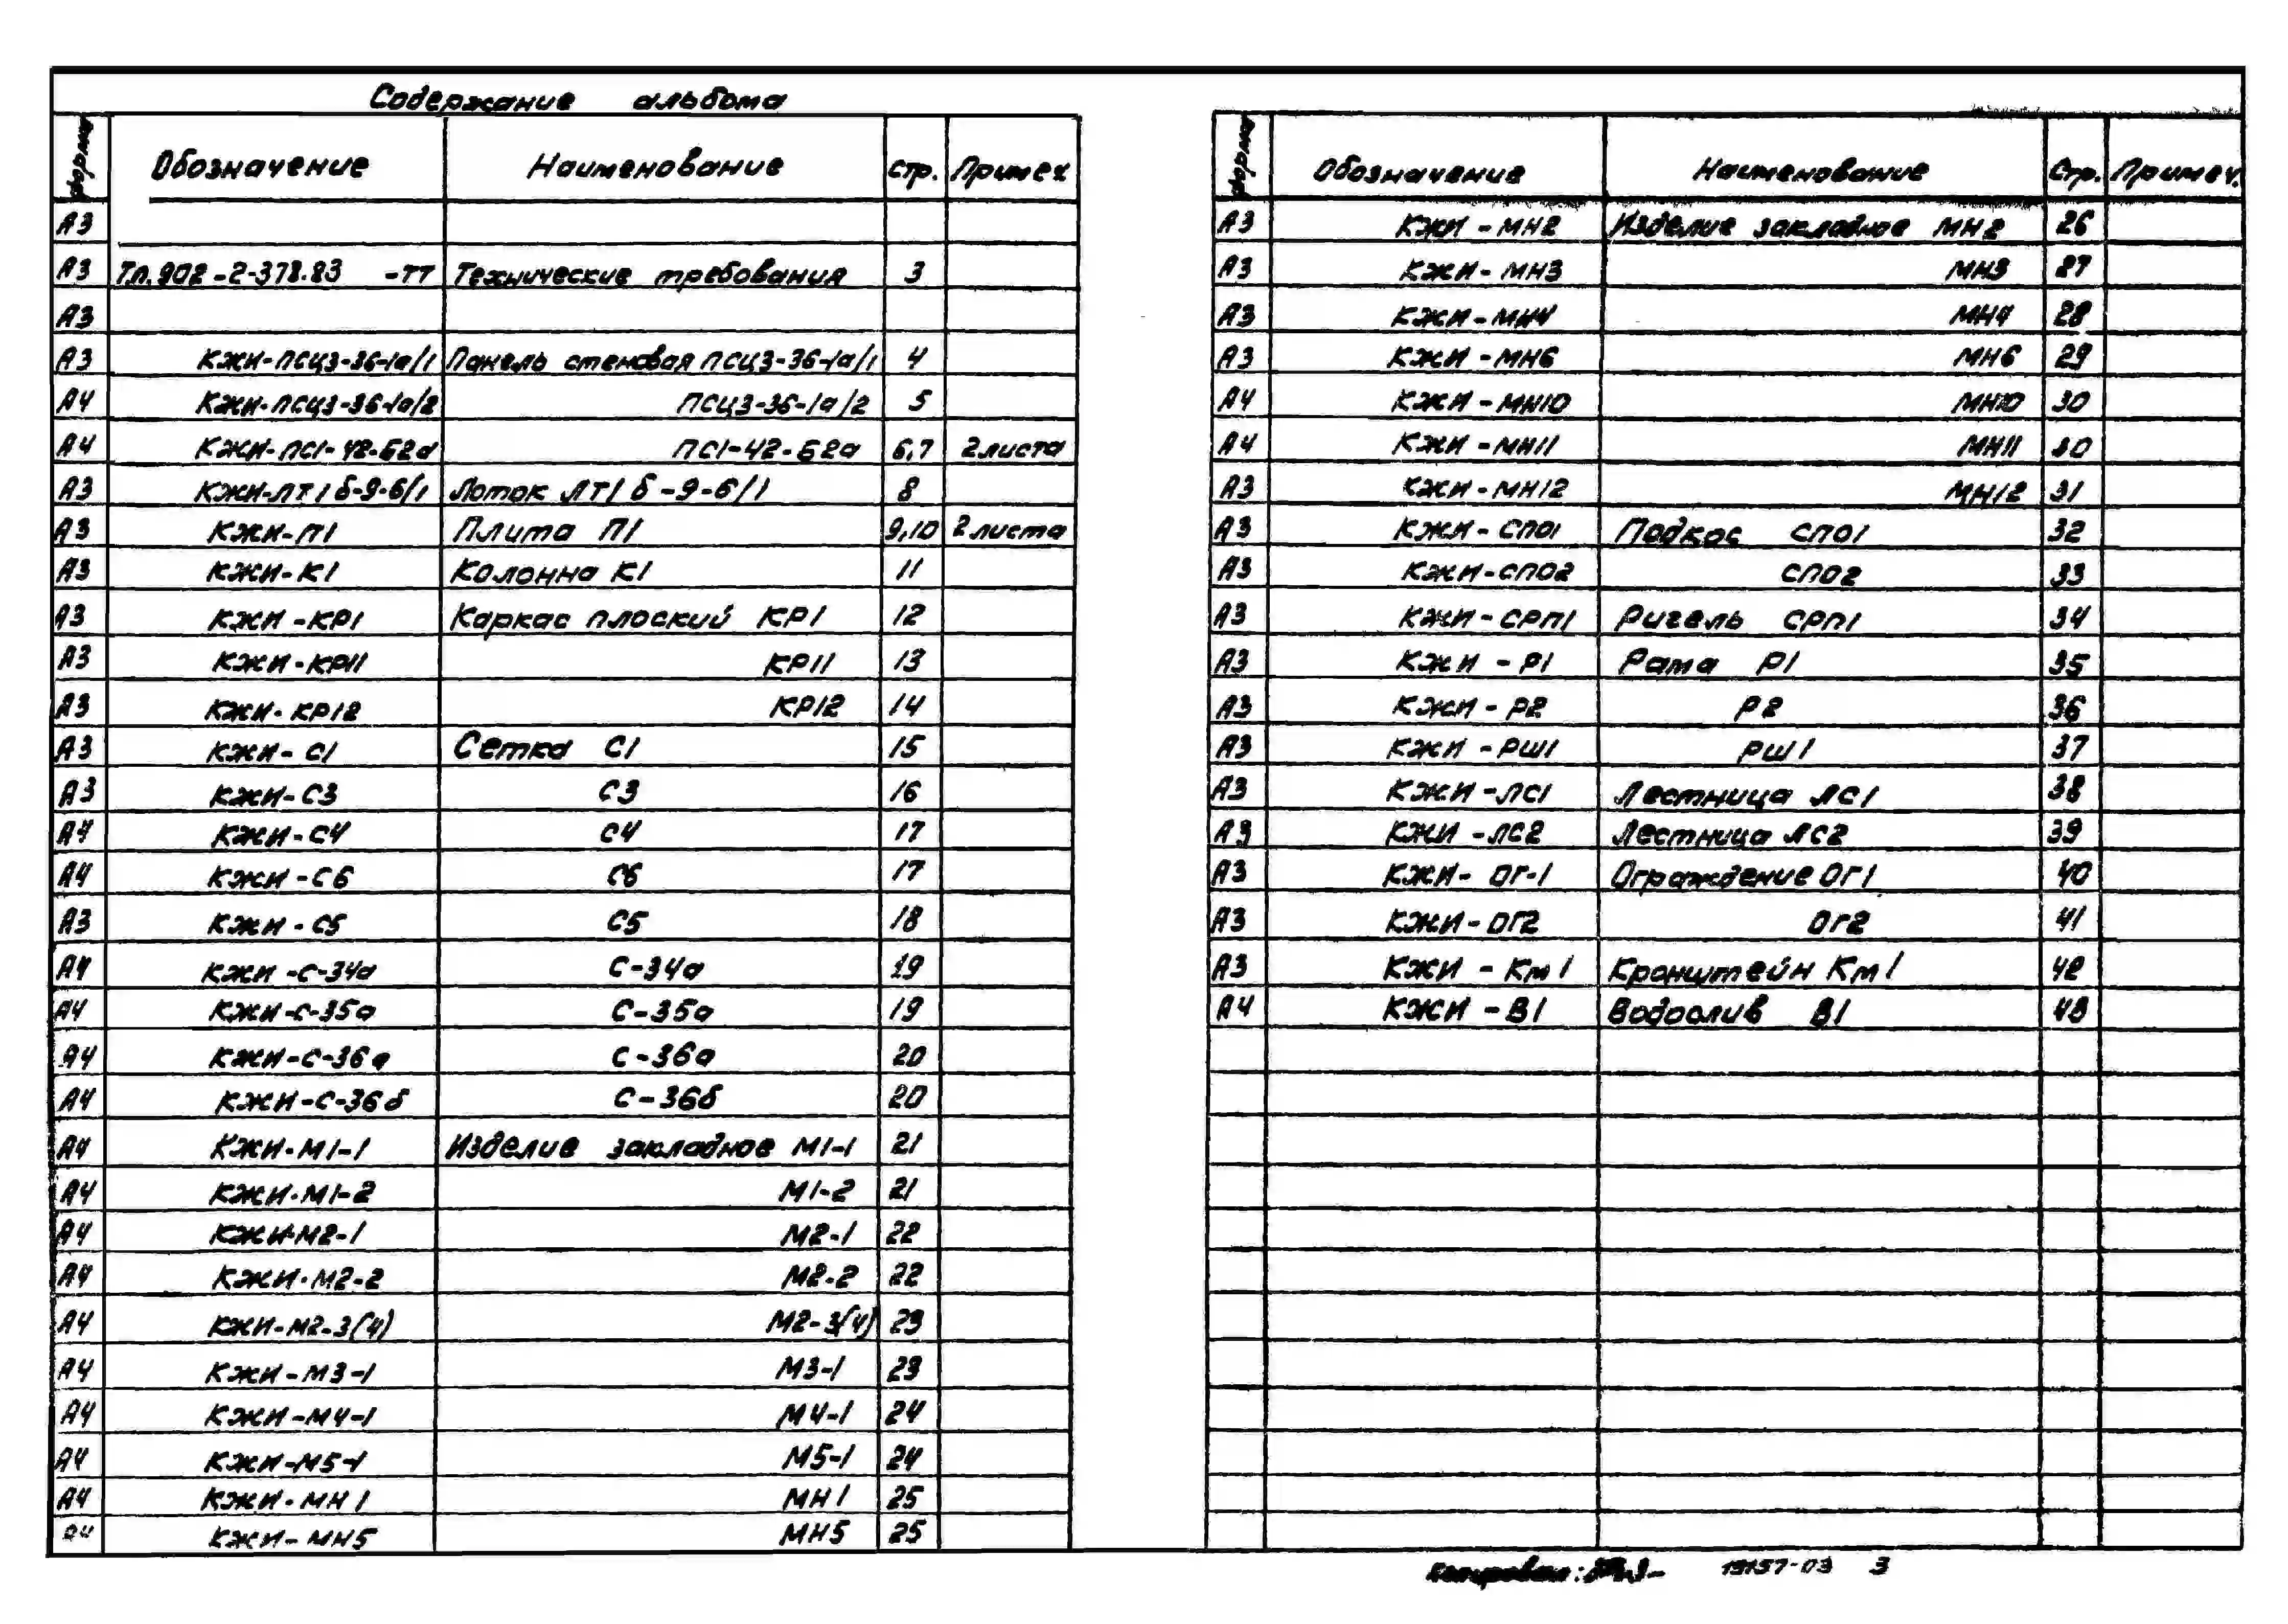 Содержание альбома
Формат Обозначение Наименование стр. Примеч
А3
А3 Т.п.902-2-378.83 -ТТ Технические требования 3
А3
А3 КЖИ-ПСЦ3-36-1а/1 Панель стеновая ПСЦ3-36-1а/1 4
А4 КЖИ-ПСЦ3-36-1а/2 ПСЦ3-36-1а/2 5
А4 КЖИ-ПС1-42-Б2а ПС1-42-Б2а 6,7 2 листа
А3 КЖИ-ЛТ1б-9-6/1 Лоток ЛТ1б-9-6/1 8
А3 КЖИ-П1 Плита П1 9,10 2 листа
А3 КЖИ-К1 Колонна К1 11
А3 КЖИ-КР1 Каркас плоский КР1 12
А3 КЖИ-КР11 КР11 13
А3 КЖИ-КР12 КР12 14
А3 КЖИ-С1 Сетка С1 15
А3 КЖИ-С3 С3 16
А4 КЖИ-С4 С4 17
А4 КЖИ-С6 С6 17
А3 КЖИ-С5 С5 18
А4 КЖИ-С-34а С-34а 19
А4 КЖИ-С-35а С-35а 19
А4 КЖИ-С-36а С-36а 20
А4 КЖИ-С-36б С-36б 20
А4 КЖИ-М1-1 Изделие закладное М1-1 21
А4 КЖИ-М1-2 М1-2 21
А4 КЖИ-М2-1 М2-1 22
А4 КЖИ-М2-2 М2-2 22
А4 КЖИ-М2-3(4) М2-3(4) 23
А4 КЖИ-М3-1 М3-1 23
А4 КЖИ-М4-1 М4-1 24
А4 КЖИ-М5-1 М5-1 24
А4 КЖИ-МН1 МН1 25
А4 КЖИ-МН5 МН5 25
Формат Обозначение Наименование Стр. Примеч.
А3 КЖИ-МН2 Изделие закладное МН2 26
А3 КЖИ-МН3 МН3 27
А3 КЖИ-МН4 МН4 28
А3 КЖИ-МН6 МН6 29
А4 КЖИ-МН10 МН10 30
А4 КЖИ-МН11 МН11 30
А3 КЖИ-МН12 МН12 31
А3 КЖИ-СПО1 Подкос СПО1 32
А3 КЖИ-СПО2 СПО2 33
А3 КЖИ-СРП1 Ригель СРП1 34
А3 КЖИ-Р1 Рама Р1 35
А3 КЖИ-Р2 Р2 36
А3 КЖИ-РШ1 РШ1 37
А3 КЖИ-ЛС1 Лестница ЛС1 38
А3 КЖИ-ЛС2 Лестница ЛС2 39
А3 КЖИ-ОГ-1 Ограждение ОГ1 40
А3 КЖИ-ОГ2 ОГ2 41
А3 КЖИ-Км1 Кронштейн Км1 42
А4 КЖИ-В1 Водослив В1 43
Копировал: 19157-03 3